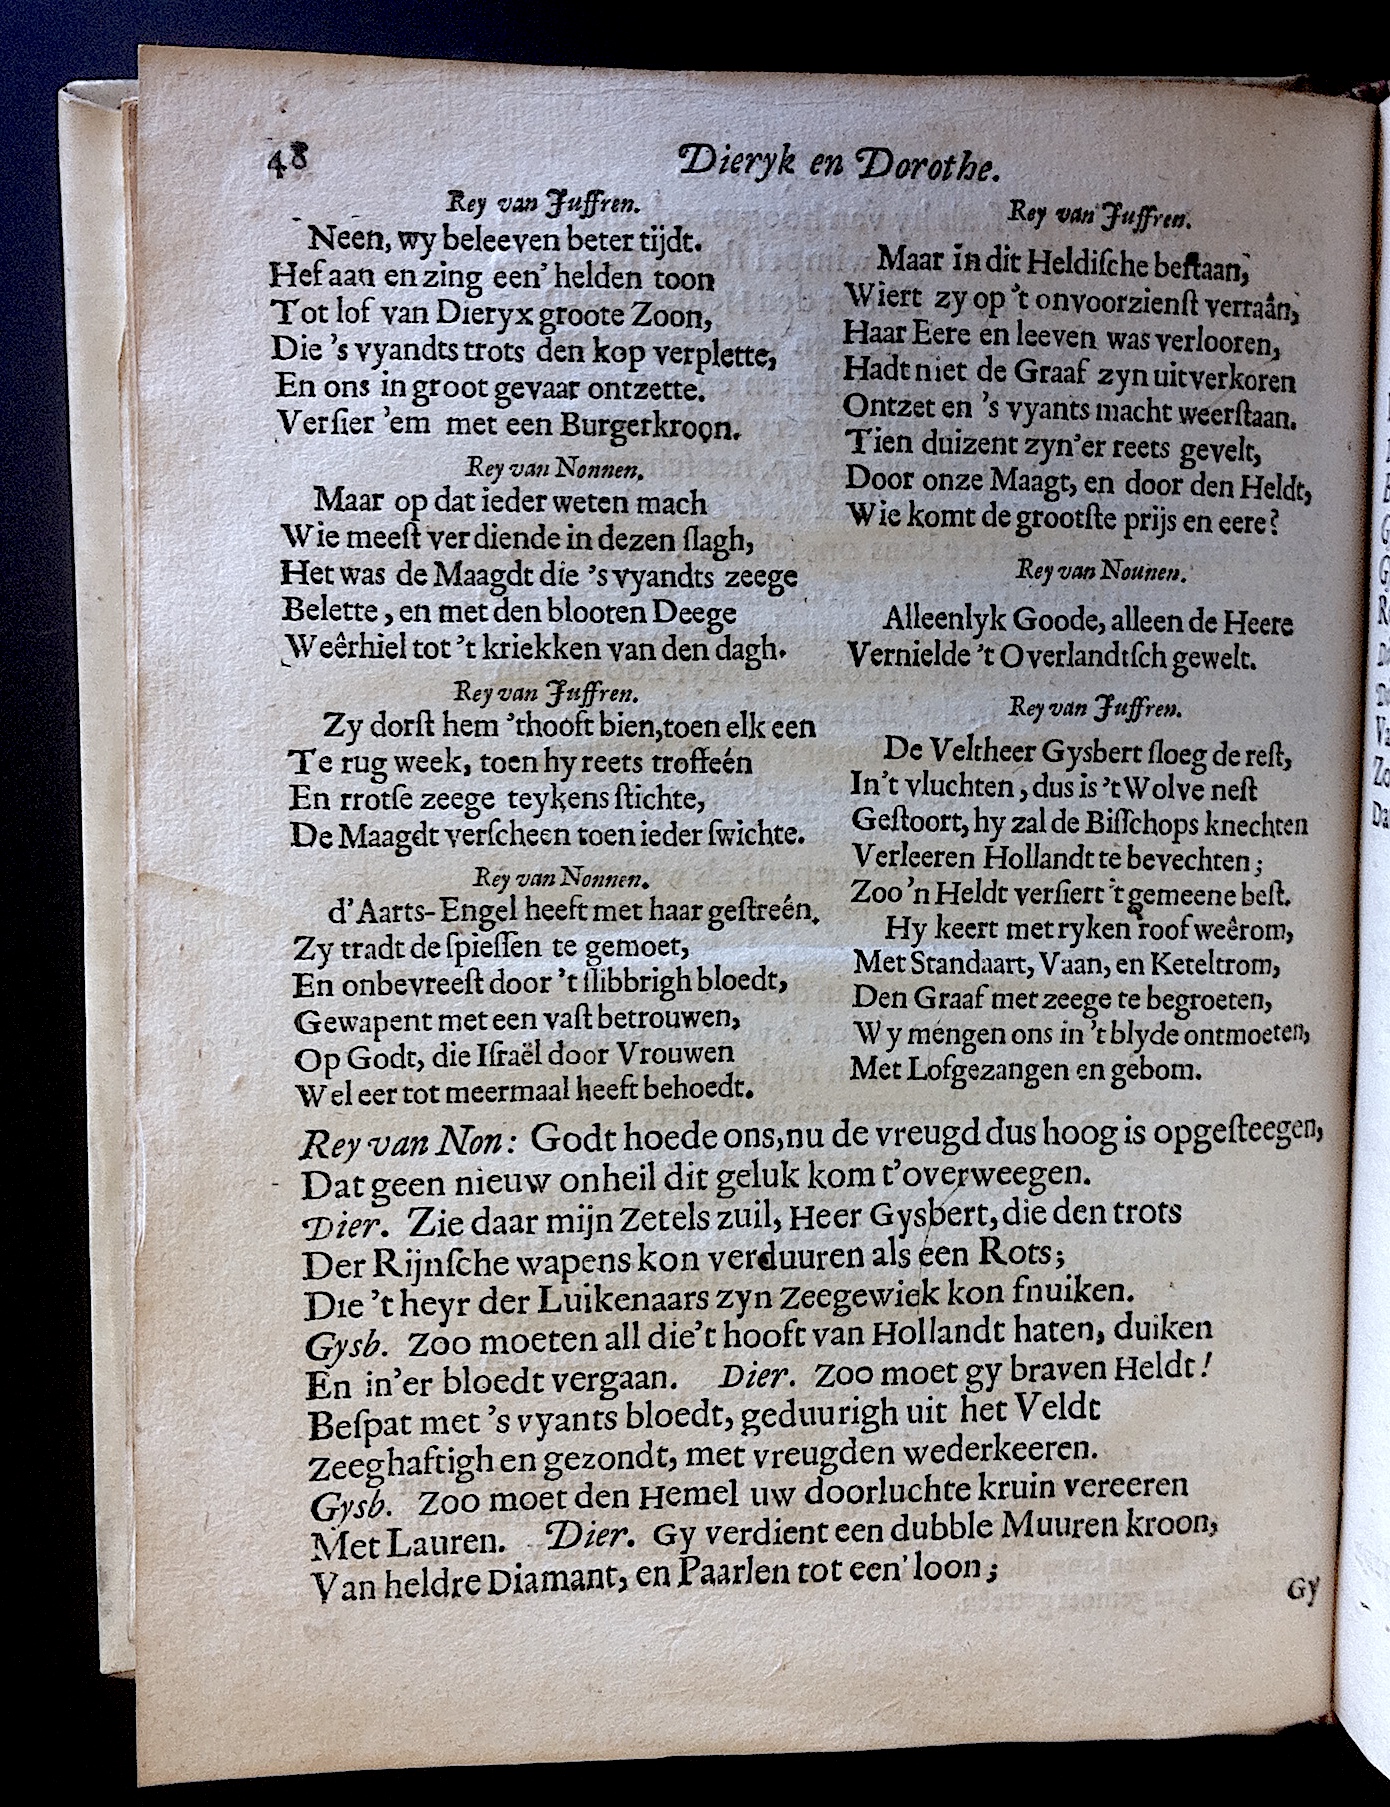 48
Dieryk en Dorothe.
Rey van Juffren.
Neen, wy beleeven beter tijdt.
Hef aan en zing een' helden toon
Tot lof van Dieryx groote Zoon,
Die 's vyandts trots den kop verplette,
En ons in groot gevaar ontzette.
Verſier 'em met een Burgerkroon.
Rey van Nonnen.
Maar op dat ieder weten mach
Wie meeſt verdiende in dezen ſlagh,
Het was de Maagdt die 's vyandts zeege
Belette, en met den blooten Deege
Weêrhiel tot 't kriekken van den dagh.
Rey van Juffren.
Zy dorſt hem 'thooft bien, toen elk een
Te rug week, toen hy reets troffeén
En rrotſe zeege teykens ſtichte,
De Maagdt verſcheen toen ieder ſwichte.
Rey van Nonnen.
d'Aarts-Engel heeft met haar geſtreén.
Zy tradt de ſpieſſen te gemoet,
En onbevreeſt door 't ſlibbrigh bloedt,
Gewapent met een vaſt betrouwen,
Op Godt, die Iſraël door Vrouwen
Wel eer tot meermaal heeft behoedt.
Rey van Juffren.
Maar in dit Heldiſche beſtaan,
Wiert zy op 't onvoorzienſt verraân,
Haar Eere en leeven was verlooren,
Hadt niet de Graaf zyn uitverkoren
Ontzet en 's vyants macht weerſtaan.
Tien duizent zyn'er reets gevelt,
Door onze Maagt, en door den Heldt,
Wie komt de grootſte prijs en eere?
Rey van Nounen.
Alleenlyk Goode, alleen de Heere
Vernielde 't Overlandtſch gewelt.
Rey van Juffren.
De Veltheer Gysbert ſloeg de reſt,
In't vluchten, dus is 't Wolve neſt
Geſtoort, hy zal de Biſſchops knechten
Verleeren Hollandt te bevechten;
Zoo 'n Heldt verſiert 't gemeene beſt.
Hy keert met ryken roof weêrom,
Met Standaart, Vaan, en Keteltrom,
Den Graaf met zeege te begroeten,
Wy mengen ons in 't blyde ontmoeten,
Met Lofgezangen en gebom.
Rey van Non: Godt hoede ons, nu de vreugd dus hoog is opgeſteegen,
Dat geen nieuw onheil dit geluk kom t'overweegen.
Dier. Zie daar mijn Zetels zuil, Heer Gysbert, die den trots
Der Rijnſche wapens kon verduuren als een Rots;
Die 't heyr der Luikenaars zyn Zeegewiek kon fnuiken.
Gysb. Zoo moeten all die't hooft van Hollandt haten, duiken
En in'er bloedt vergaan. Dier. Zoo moet gy braven Heldt!
Beſpat met 's vyants bloedt, geduurigh uit het Veldt
Zeeghaftigh en gezondt, met vreugden wederkeeren.
Gysb. Zoo moet den Hemel uw doorluchte kruin vereeren
Met Lauren. Dier. Gy verdient een dubble Muuren kroon,
Van heldre Diamant, en Paarlen tot een' loon;
Gy